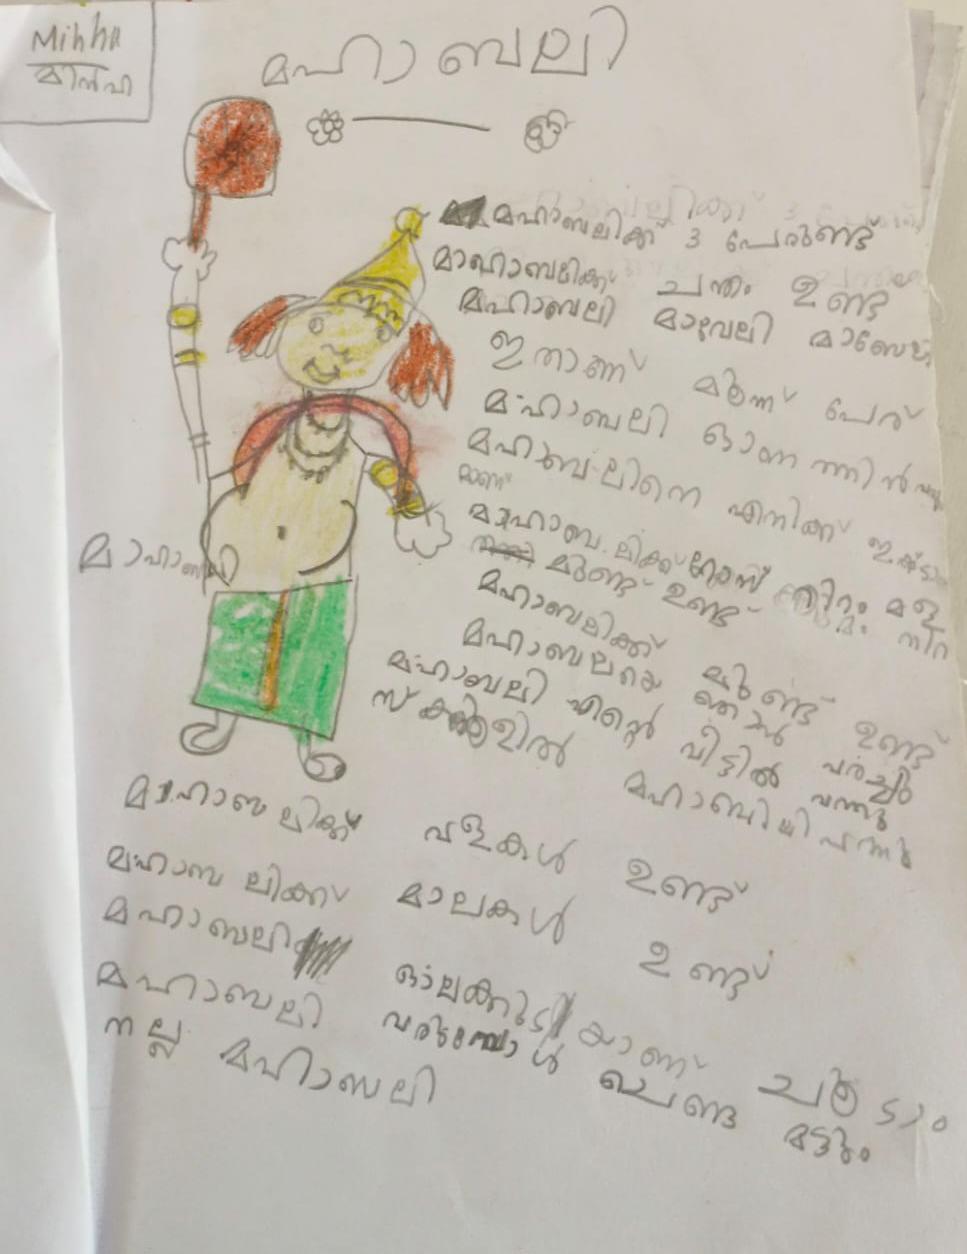 Minha
മിൻഹ
മഹാബലി
മഹാബലിക്ക് 3 പേരുണ്ട്
മാഹാബലിക്ക് ചന്തം ഉണ്ട്
മഹാബലി മാവേലി
ഇതാണ് മൂന്ന് പേര്
മഹാബലി ഓണത്തിൻ
മഹാബലിനെ എനിക്ക് ഇഷ്ടം
മാണ്
മാഹാബലിക്ക് റോസ് നിറം
മുണ്ട് ഉണ്ട്
മഹാബലിക്ക് മുണ്ട് ഉണ്ട്
മഹാബലയെ ഞാൻ
മഹാബലി എന്റെ വീട്ടിൽ വന്നു
മഹാബിലി വന്നു
മാഹാബലി
മാഹാബലിക്ക് വളകൾ ഉണ്ട്
മഹാബലിക്ക് മാലകൾ ഉണ്ട്
മഹാബലി ഓലക്കുടയാണ്
മഹാബലി വരുമ്പോൾ ചെണ്ട
നല്ല മഹാബലി